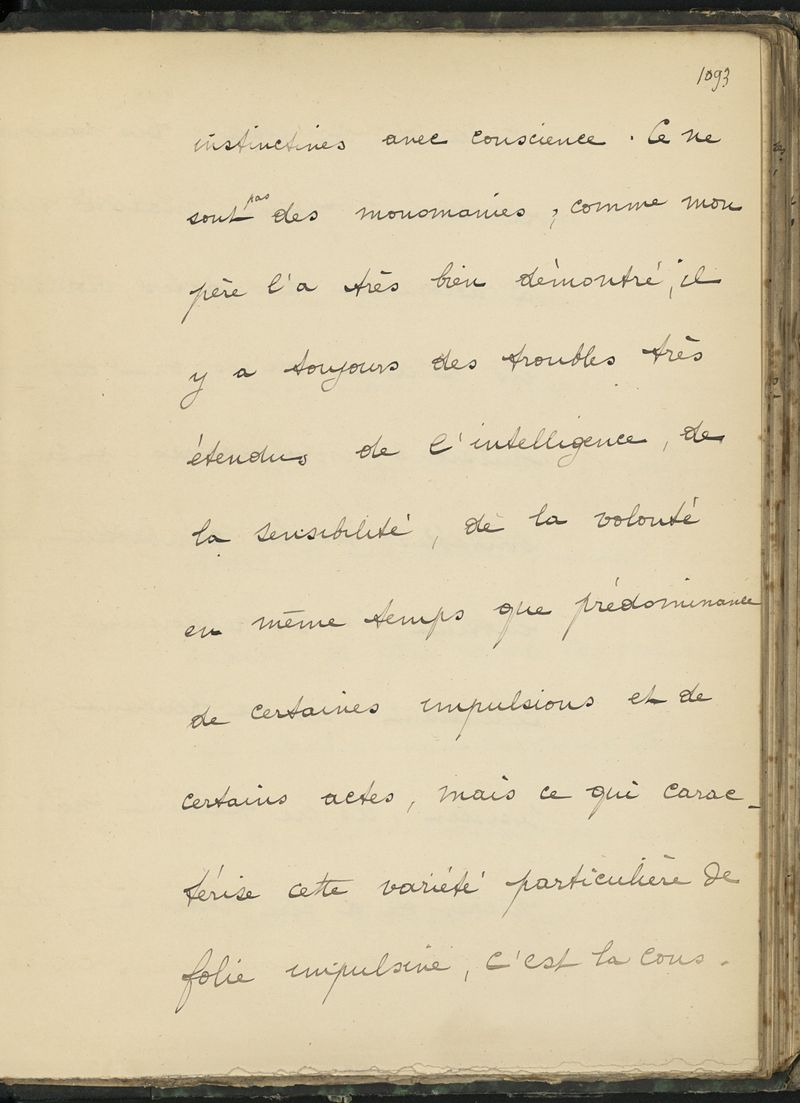 1093
instinctives avec conscience. Ce ne
sont pas des monomanies, comme mon
père l'a très bien démontré, il
y a toujours des troubles très
étendus de l'intelligence, de
la sensibilité, de la volonté
en même temps que prédominance
de certaines impulsions et de
certains actes, mais ce qui carac-
térise cette variété particulière de
folie impulsive, c'est la cons-